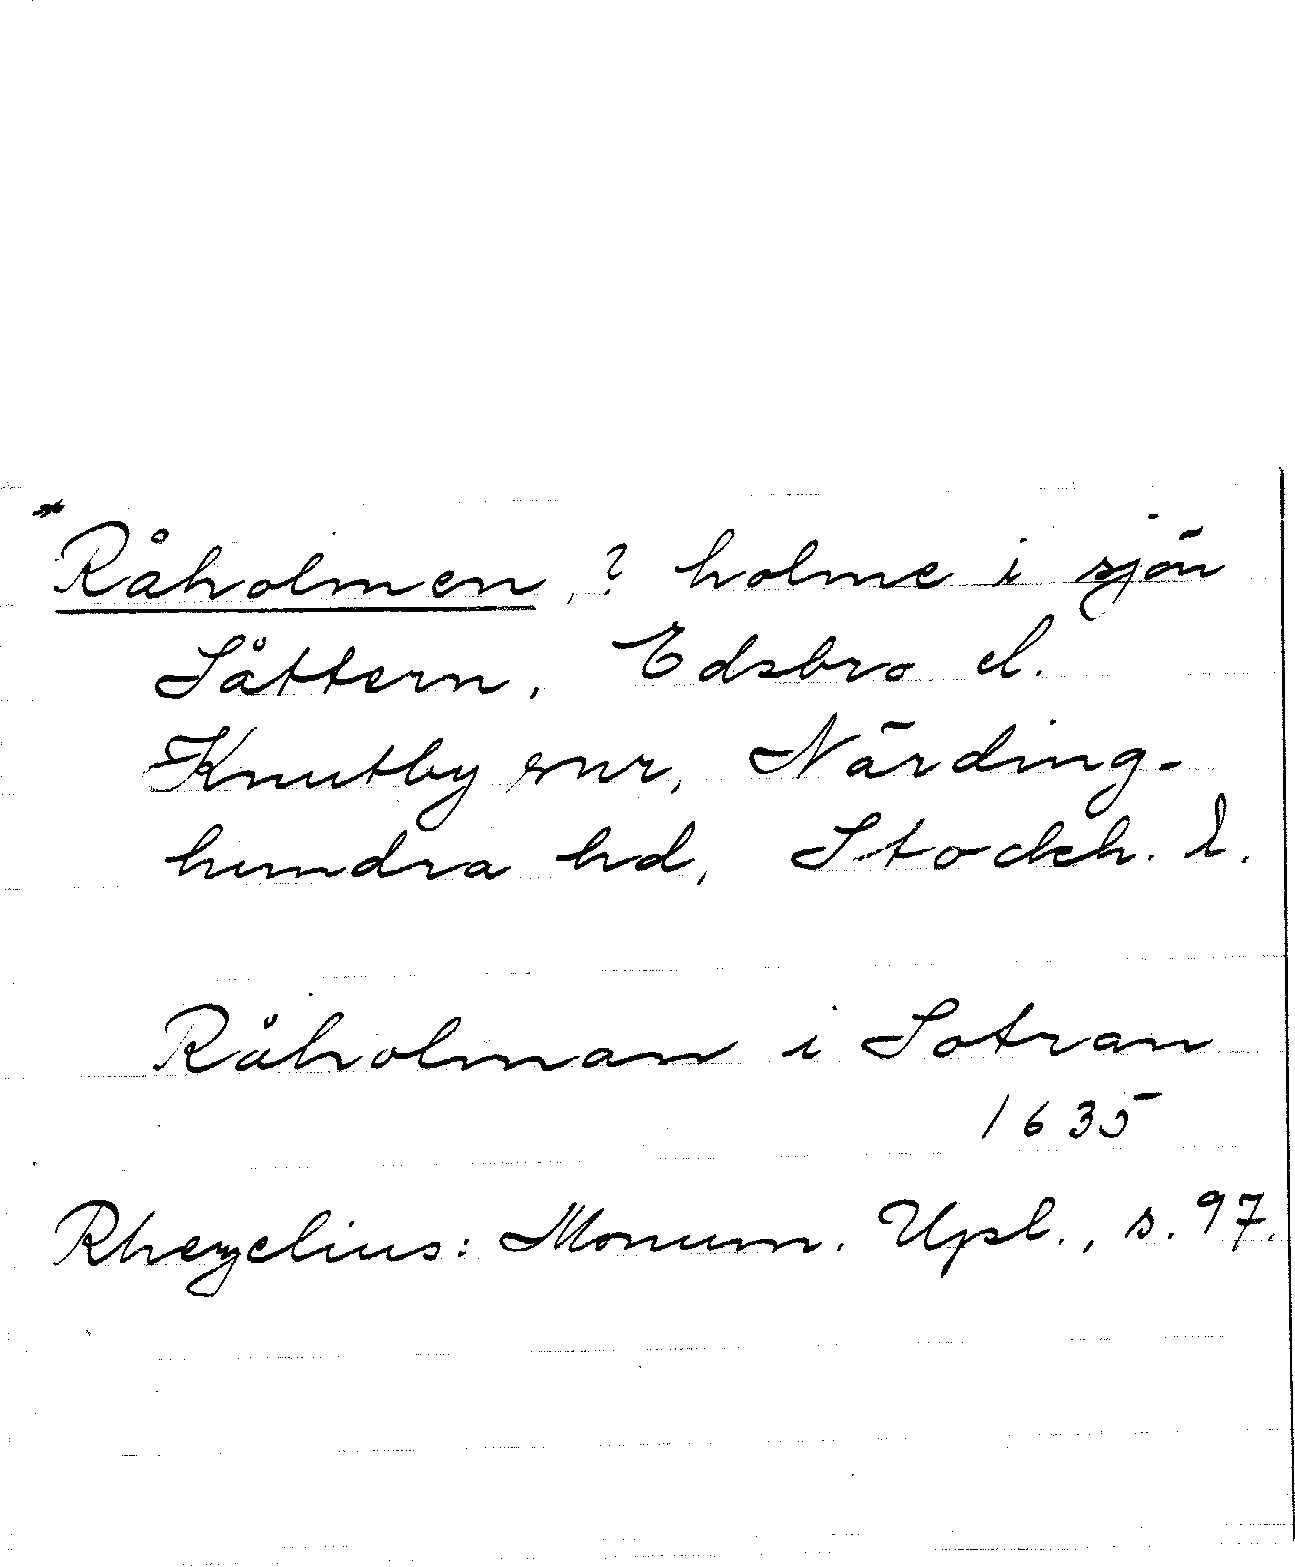 *Råholmen, ? holme i sjön
Såttern, Edsbro el.
Knutby snr, Närding-
hundra hd, Stockh. l.
Råholman i Sotran
1635
Rhezelius: Monum. Upl., s. 97.